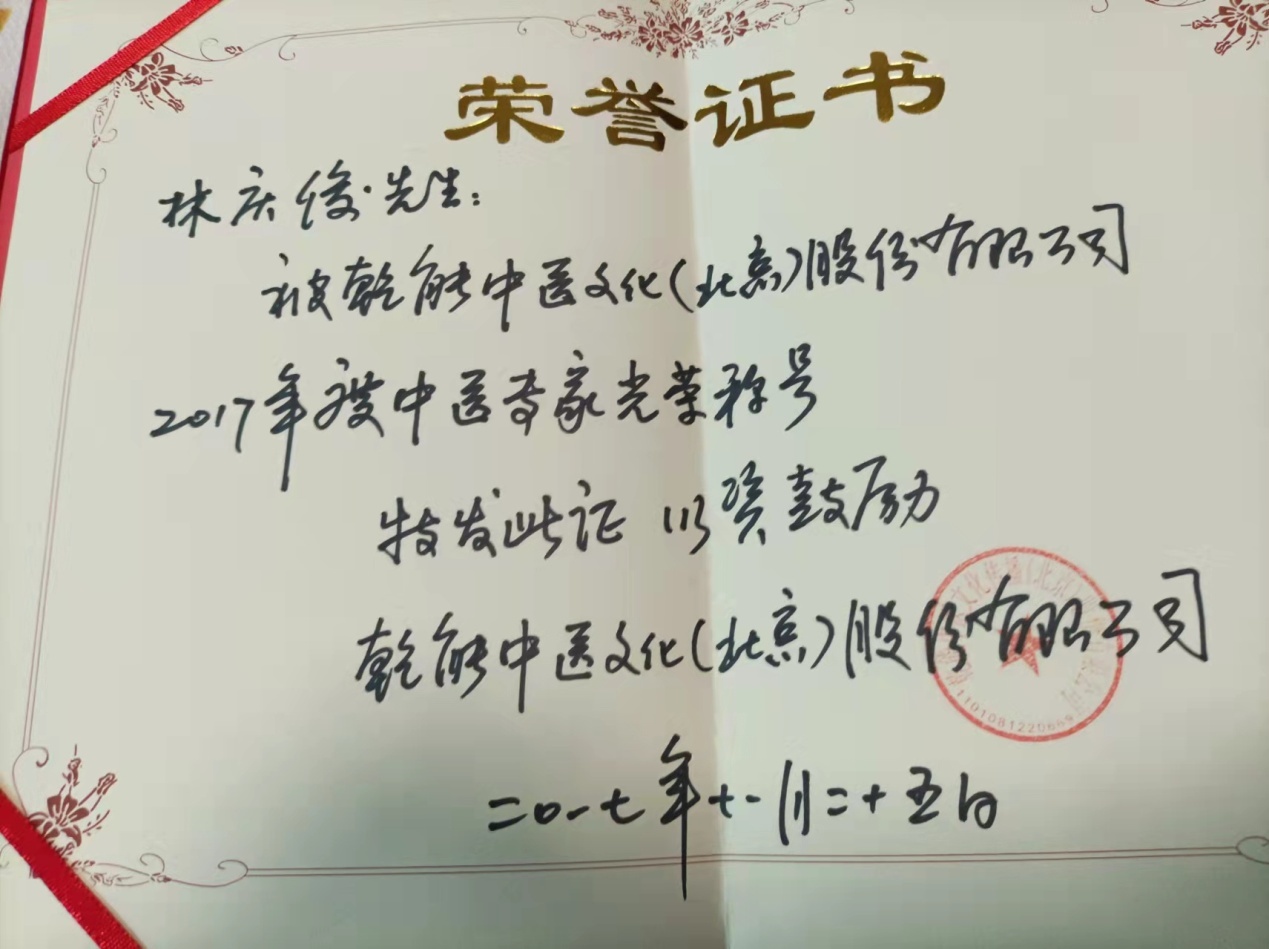 荣誉证书
林庆俊先生:
被乾能中医文化(北京)股份有限公司
2017年度中医专家光荣称号
特发此证 以资鼓励
乾能中医文化(北京)股份有限公司
二〇一七年十一月二十五日